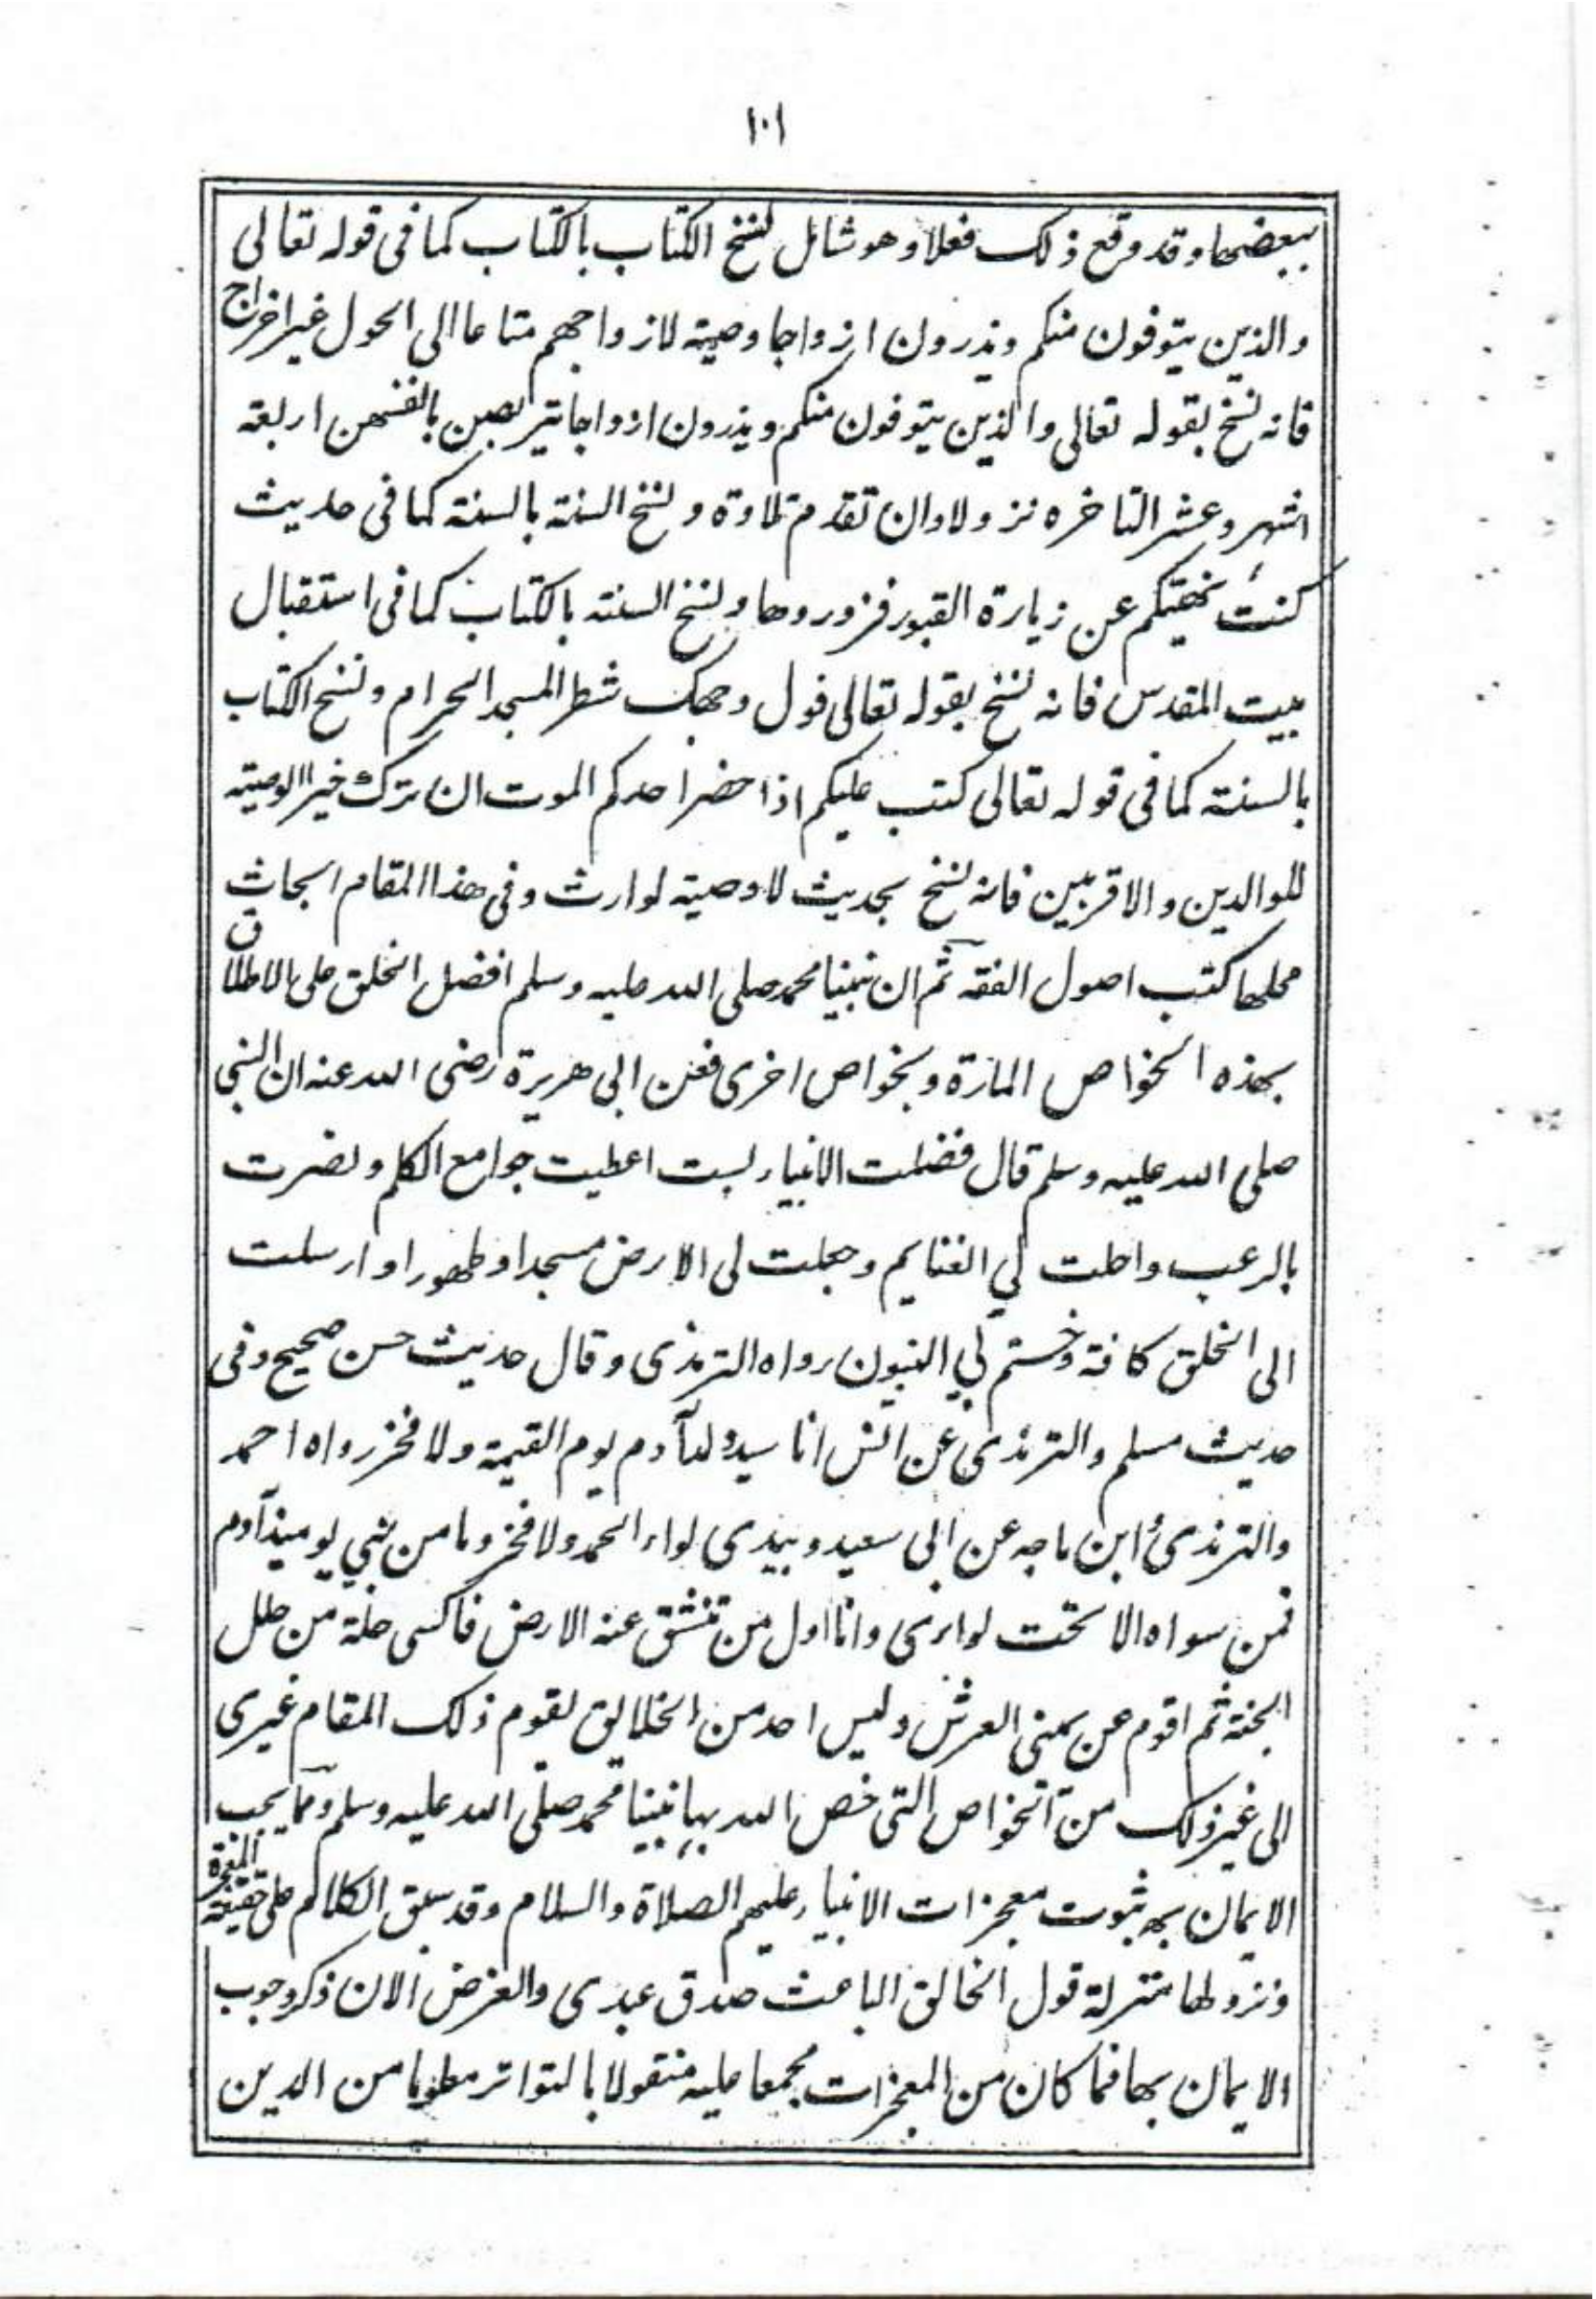 ١٠١
ببعضها وقد وقع ذلك فعلا وهو شامل لنسخ الكتاب بالكتاب كما فى قوله تعالى
والذين يتوفون منكم ويذرون ازواجا وصية لازواجهم متاعا الى الحول غير اخراج
فانه نسخ بقوله تعالى والذين يتوفون منكم ويذرون ازواجا يتربصن بانفسهن اربعة
اشهر وعشر التاخره نزولا وان تقدم تلاوة ونسخ السنة بالسنة كما فى حديث
كنت نهيتكم عن زيارة القبور فزوروها ونسخ السنة بالكتاب كما فى استقبال
بيت المقدس فانه نسخ بقوله تعالى فول وجهك شطر المسجد الحرام ونسخ الكتاب
بالسنة كما فى قوله تعالى كتب عليكم اذا حضر احدكم الموت ان ترك خيرا الوصية
للوالدين والاقربين فانه نسخ بحديث لا وصية لوارث وفى هذا المقام ابحاث
محلها كتب اصول الفقه ثم ان نبينا محمد صلى الله عليه وسلم افضل الخلق على الاطلاق
بهذه الخواص المارة وبخواص اخرى فعن ابى هريرة رضى الله عنه ان النبى
صلى الله عليه وسلم قال فضلت الانبياء بست اعطيت جوامع الكلم ونصرت
بالرعب واحلت لي الغنايم وجعلت لى الارض مسجدا وطهورا وارسلت
الى الخلق كافة وختم بي النبيون رواه الترمذى وقال حديث حسن صحيح وفى
حديث مسلم والترمذى عن انس انا سيد ولد آدم يوم القيمة ولا فخر رواه احمد
والترمذى ابن ماجه عن ابى سعيد وبيدى لواء الحمد ولا فخر وما من نبي يوميذ آدم
فمن سواه الا تحت لوائى وانا اول من تنشق عنه الارض فاكسى حلة من حلل
الجنة ثم اقوم عن يمنى العرش وليس احد من الخلايق يقوم ذلك المقام غيرى
الى غير ذلك من الخواص التى خص الله بها نبينا محمد صلى الله عليه وسلم ومما يجب
الايمان به ثبوت معجزات الانبياء عليهم الصلاة والسلام وقد سبق الكلام على حقيقة المعجزة
ونزولها منزلة قول الخالق الباعث صدق عبدى والغرض الان ذكر وجوب
الايمان بها فما كان من المعجزات مجمعا عليه منقولا بالتواتر معلوما من الدين